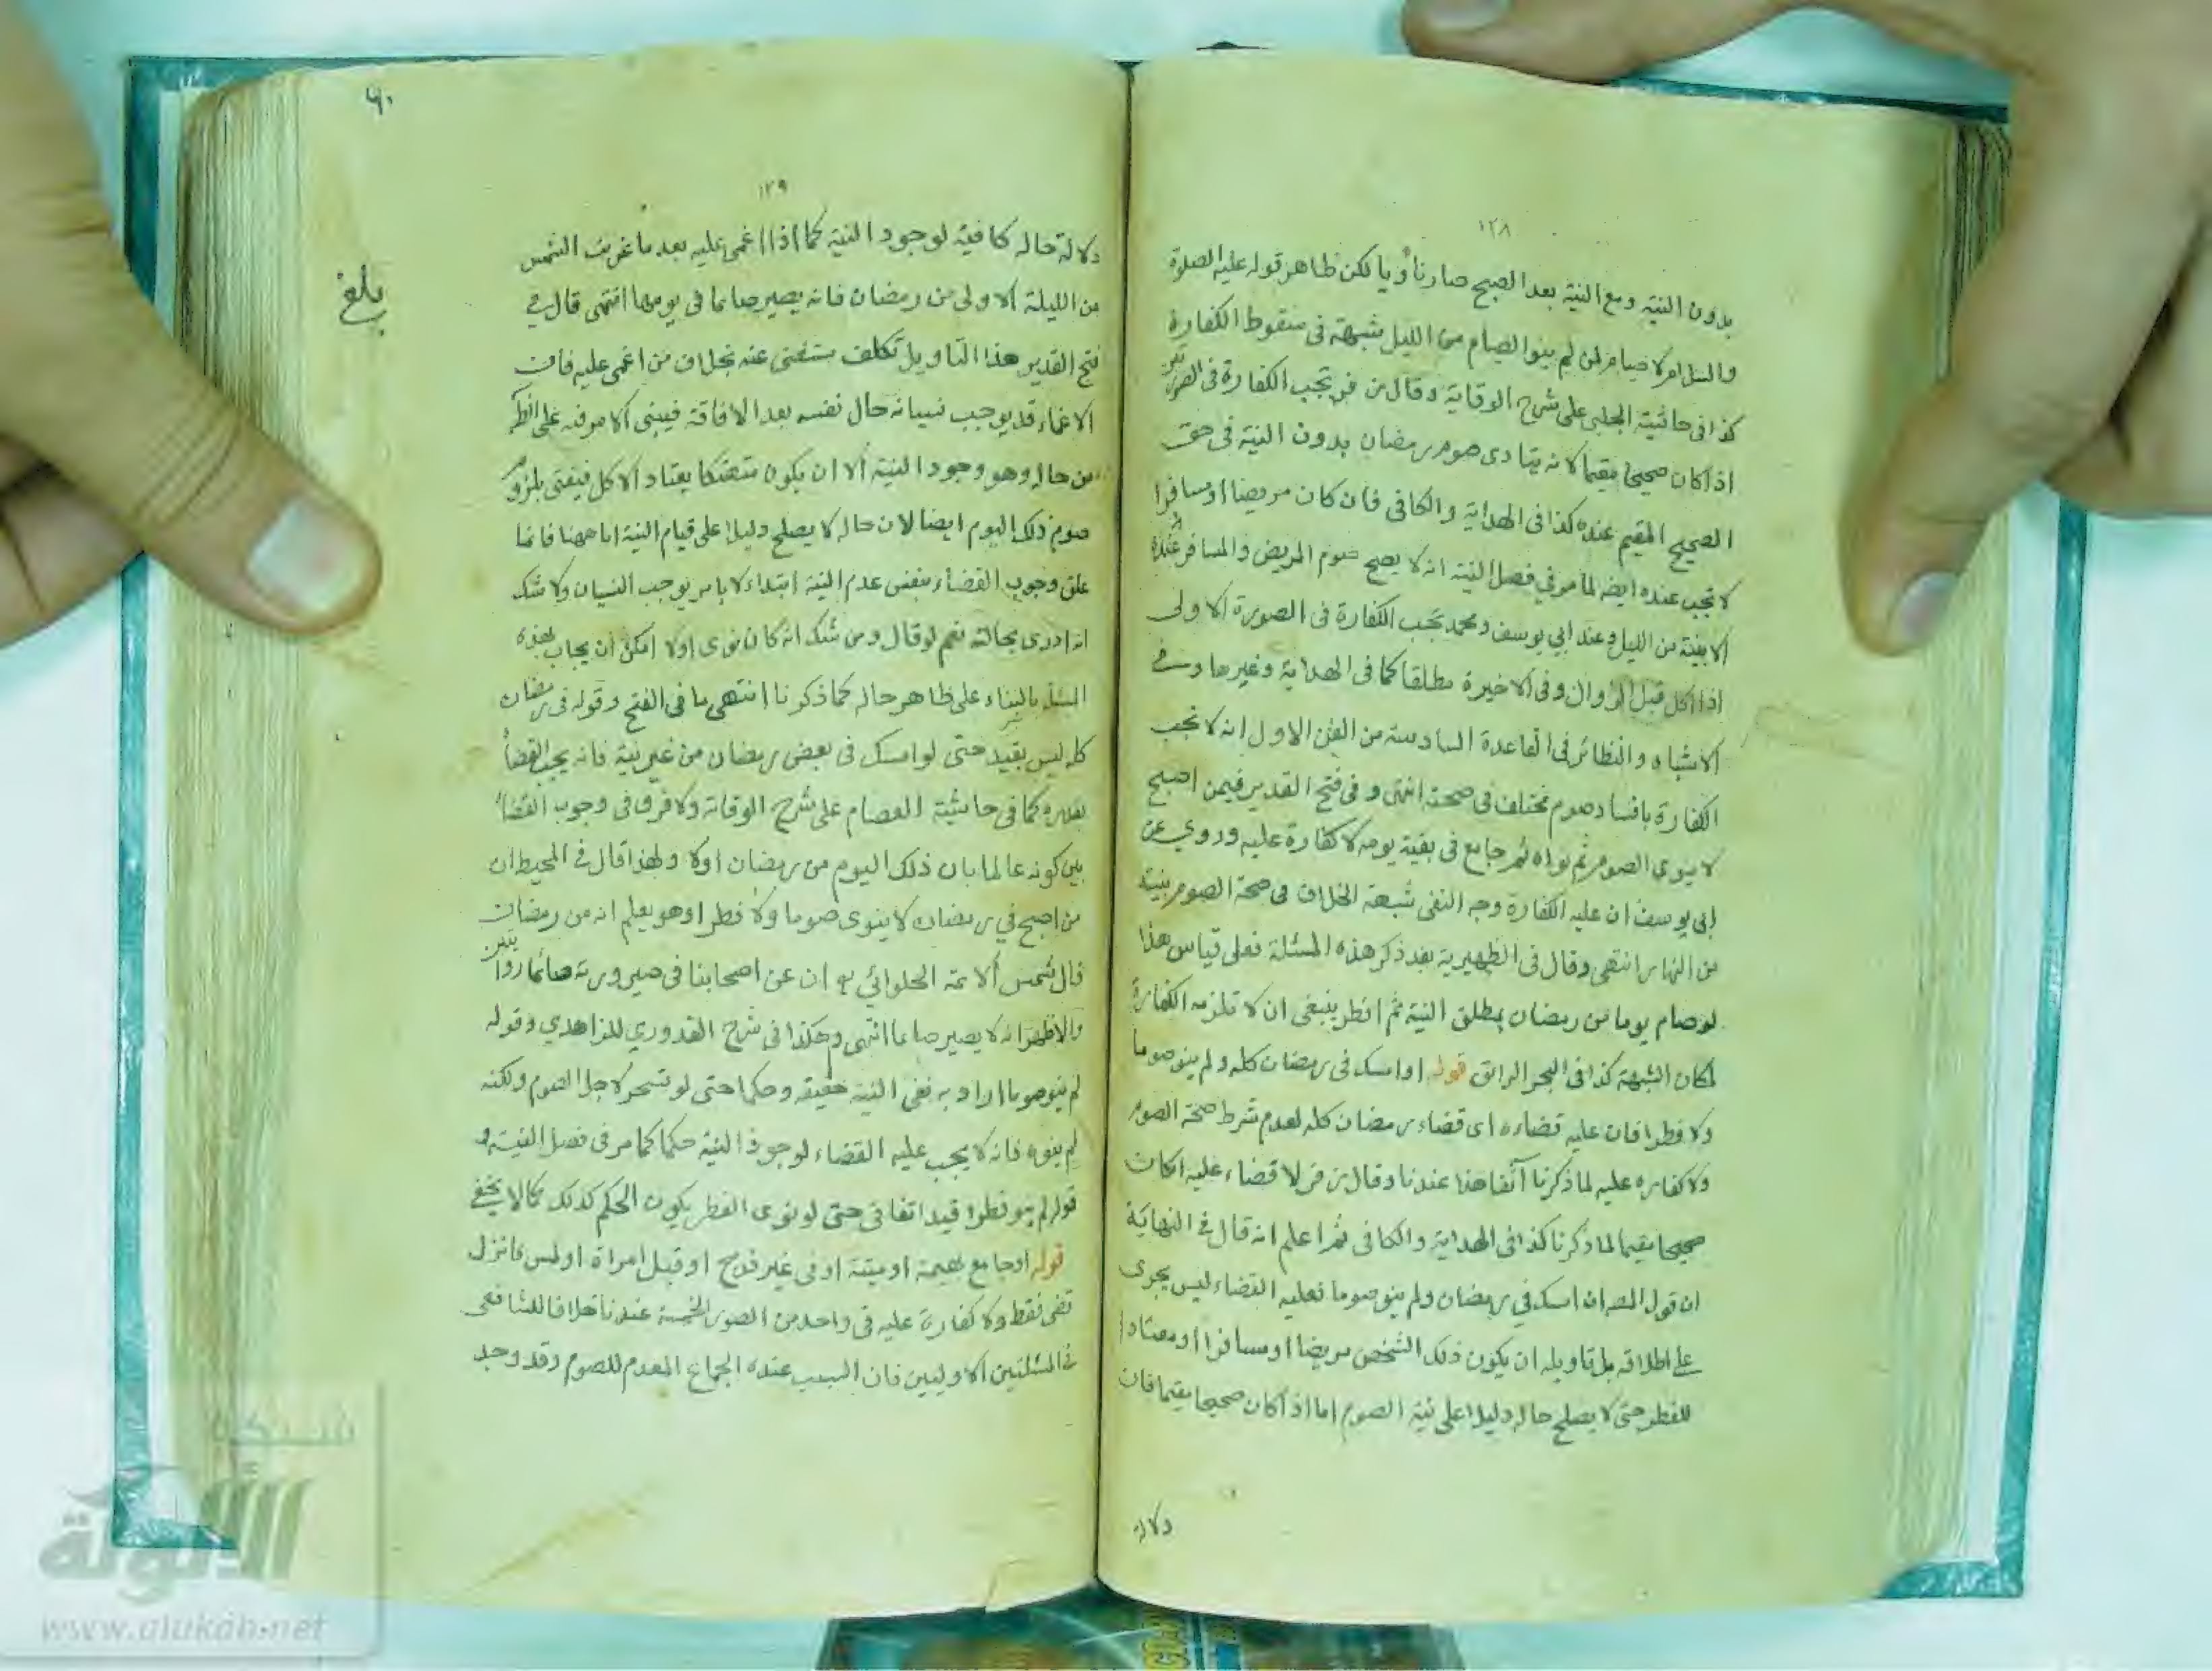 ١٢٨
بدون النية ومع النية بعد الصبح صار ناويا لكن ظاهر قوله عليه الصلوة
والسلام لا صيام لمن لم ينو الصيام من الليل شبهة فى سقوط الكفارة
كذا فى حاشية الجلبى على شرح الوقاية وقال زفر تجب الكفارة فى الصورتين
اذا كان صحيحا مقيما لانه يتادى صوم رمضان بدون النية فى حق
الصحيح المقيم عنده كذا فى الهداية والكافى فان كان مريضا او مسافرا
لا تجب عنده ايضا لما مر في فصل النية انه لا يصح صوم المريض والمسافر عنده
الا بنية من الليل وعند ابي يوسف ومحمد تجب الكفارة فى الصورة الاولى
اذا اكل قبل الزوال وفى الاخيرة مطلقا كما فى الهداية وغيرها وفي
الاشباه والنظائر فى القاعدة السادسة من الفن الاول انه لا تجب
الكفارة بافساد صوم مختلف فى صحته انتهى وفى فتح القدير فيمن اصبح
لا ينوى الصوم ثم نواه ثم جامع فى بقية يومه لا كفارة عليه وروي عن
ابى يوسف ان عليه الكفارة وجه النفى شبهة الخلاف فى صحة الصوم بنية
من النهار انتهى وقال فى الظهيرية بعد ذكر هذه المسئلة فعلى قياس هذا
لو صام يوما من رمضان بمطلق النية ثم افطر ينبغى ان لا تلزمه الكفارة
لمكان الشبهة كذا فى البحر الرائق قوله او امسك فى رمضان كله ولم ينو صوما
ولا فطرا فان عليه قضاءه اى قضاء رمضان كله لعدم شرط صحة الصوم
ولا كفارة عليه لما ذكرنا آنفا هذا عندنا وقال زفر لا قضاء عليه اذا كان
صحيحا مقيما لما ذكرنا كذا فى الهداية والكافى ثم اعلم انه قال في النهاية
ان قول المص ان امسك في رمضان ولم ينو صوما فعليه القضاء ليس يجرى
على اطلاقه بل تاويله ان يكون ذلك الشخص مريضا او مسافرا او معتادا
للفطر حتى لا يصلح حاله دليلا على نية الصوم اما اذا كان صحيحا مقيما فان
دلالة
٦٠
١٢٩
دلالة حاله كافية لوجود النية كما اذا اغمى عليه بعد ما غربت الشمس
من الليلة الاولى من رمضان فانه يصير صائما فى يومها انتهى قال في
فتح القدير هذا التاويل تكلف مستغنى عنه بخلاف من اغمى عليه فان
الاغماء قد يوجب نسيانه حال نفسه بعد الافاقة فيبنى الامر فيه على الظاهر
من حاله وهو وجود النية الا ان يكون متهتكا يعتاد الاكل فيفتى بلزوم
صوم ذلك اليوم ايضا لان حاله لا يصلح دليلا على قيام النية اما ههنا فانما
علق وجوب القضاء بنفس عدم النية ابتداء لا بامر يوجب النسيان ولا شك
انه ادرى بحاله نعم لو قال ومن شك انه كان نوى اولا امكن ان يجاب بهذه
المسئلة بالبناء على ظاهر حاله كما ذكرنا انتهى ما فى الفتح وقوله فى رمضان
كله ليس بقيد حتى لو امسك فى بعض رمضان من غير نية فانه يجب القضاء
بقدره كما فى حاشية العصام على شرح الوقاية ولا فرق فى وجوب القضاء
بين كونه عالما بان ذلك اليوم من رمضان اولا ولهذا قال في المحيط ان
من اصبح في رمضان لا ينوى صوما ولا فطرا وهو يعلم انه من رمضان
قال شمس الائمة الحلوائي ان عن اصحابنا فى صيرورته صائما روايتين
والاظهر انه لا يصير صائما انتهى وهكذا فى شرح القدوري للزاهدي وقوله
لم ينو صوما اراد به نفى النية حقيقة وحكما حتى لو تسحر لاجل الصوم ولكنه
لم ينوه فانه لا يجب عليه القضاء لوجود النية حكما كما مر فى فصل النية و
قوله لم ينو فطرا قيد اتفاقى حتى لو نوى الفطر يكون الحكم كذلك كما لا يخفى
قوله او جامع بهيمة او ميتة او فى غير فرج او قبل امراة او لمس فانزل
قضى فقط ولا كفارة عليه فى واحد من الصور الخمسة عندنا خلافا للشافعى
في المسئلتين الاوليين فان السبب عنده الجماع المعدم للصوم وقد وجد
بلغ
شبكة
الألوكة
www.alukah.net